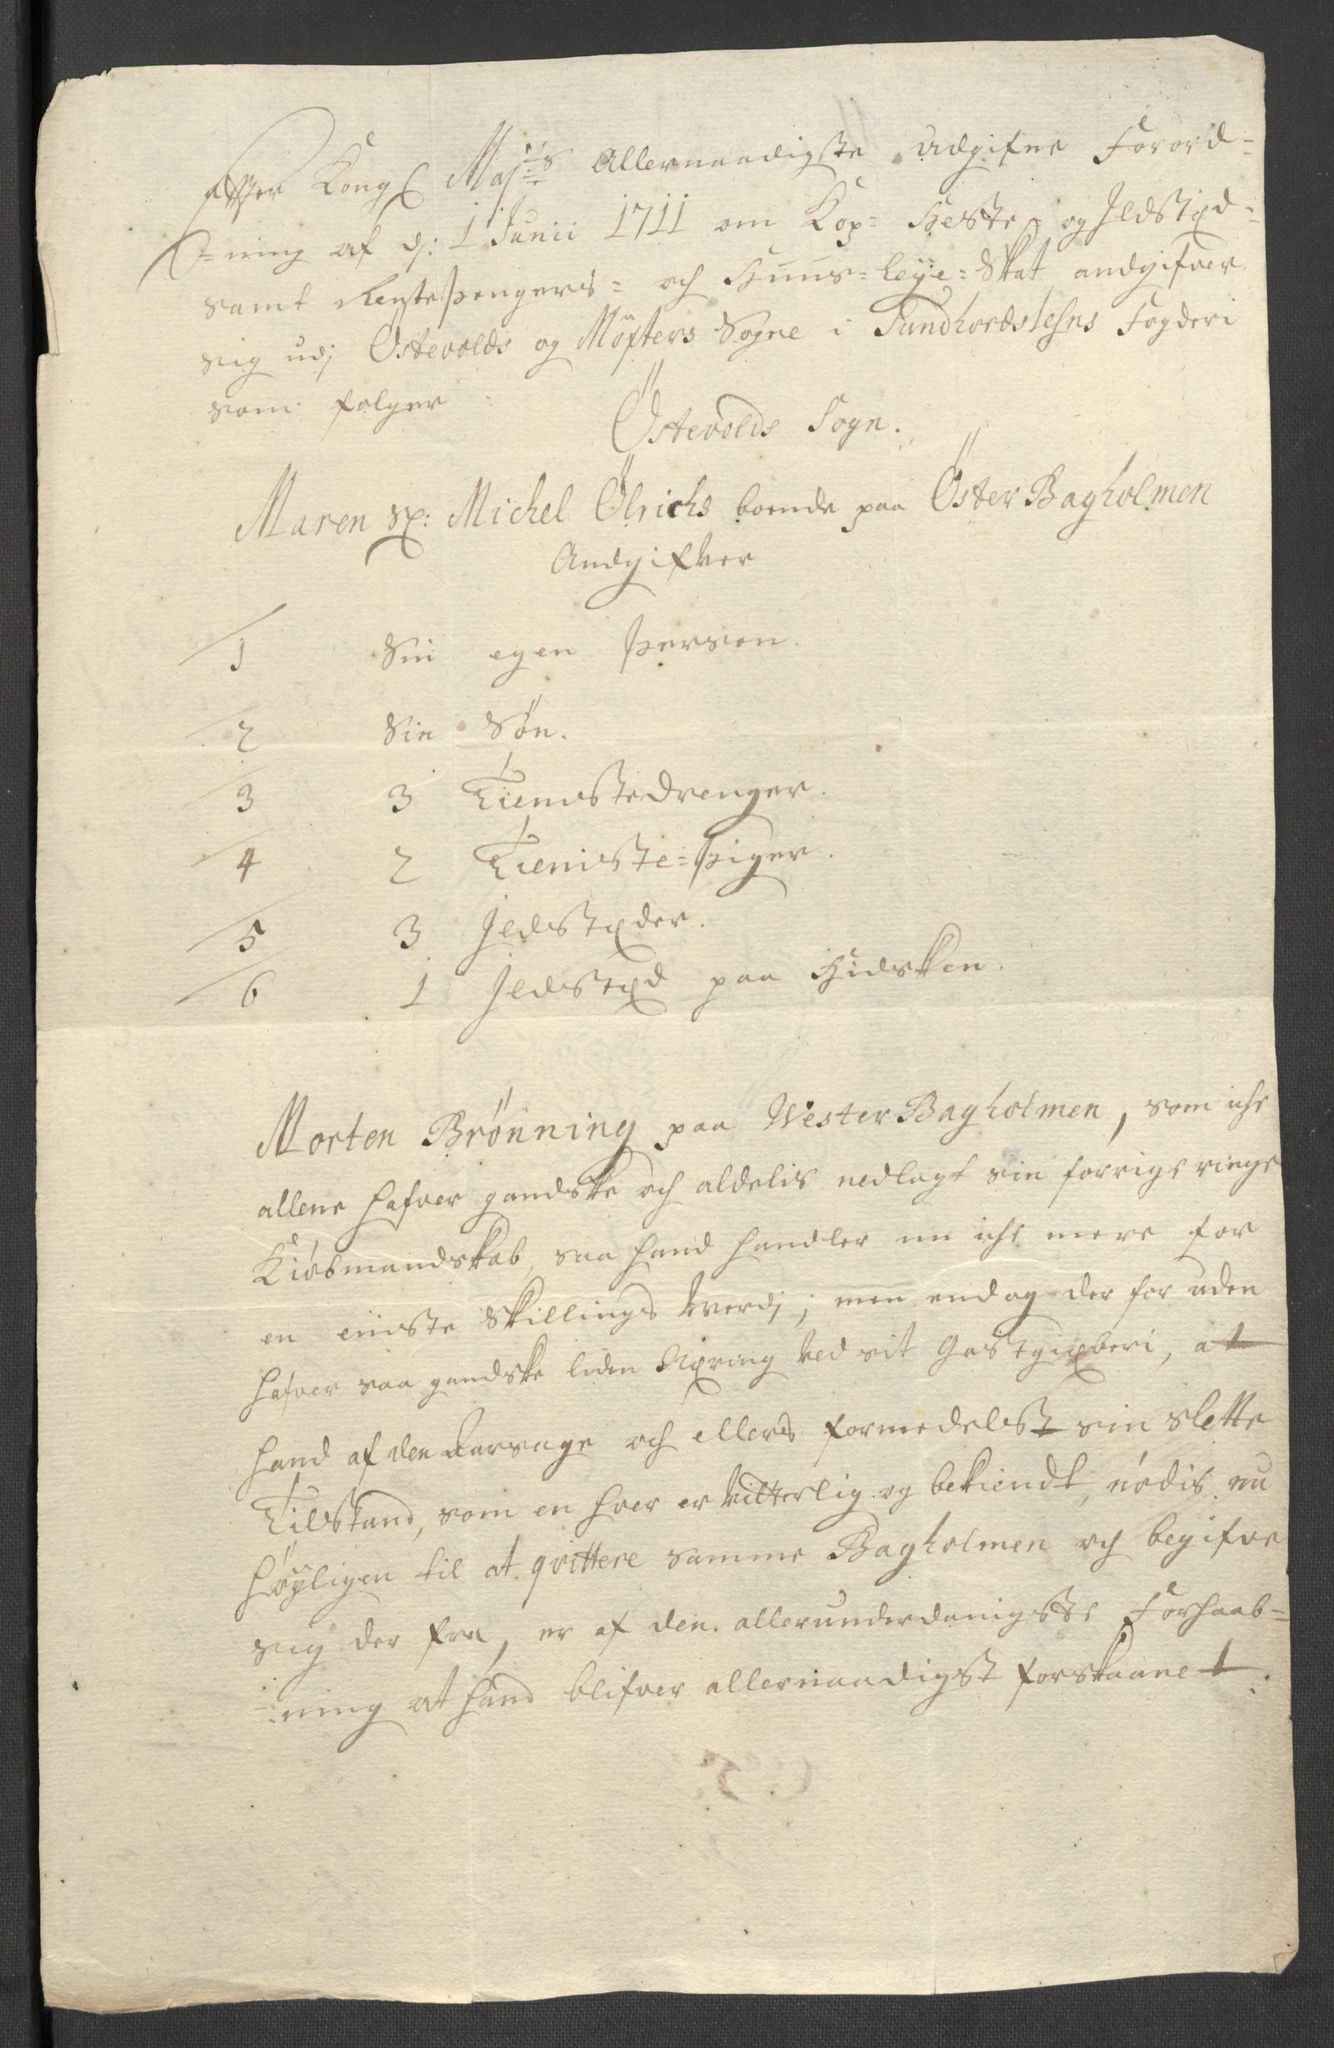 Efter Kongl Majts Allernaadigste Udgifne Forord-
-ning af d: 1 Junii 1711 om Kop- Heste- og Jldstæd-
samt Rentepengers- och Huus-leye-Skat andgifver
sig udj Ostevolds og Møgsters Sogne i Sundhordlehns Fogderi
som følger
Østevolds Sogn.
Maren Sl: Michel Ølrichs boende paa Øster Bagholmen
Andgifver
1 Sin egen Person.
2 Sin Søn.
3 3 Tienistedrenger.
4 2 Tieniste-Piger.
5 3 Jldstæder.
6 1 Jldstæd paa Hidsken.
Morten Brønning paa Wester Bagholmen, som iche
allene hafver gandske och aldelis nedlagt sin forrige ringe
Kiøbmandskab, saa hand handler nu iche mere for
en eniste Skillings Verdj; men endog der for uden
hafver saa gandske liden Næring ved sit Gastgifveri, at
hand af den Aarsage och ellers formedelst sin slette
Tilstand, som en hver er vitterlig og bekiendt, nødis nu
høyligen til at qvittere samme Bagholmen och begifve
sig der fra, er af den allerunderdanigste Forhaab-
-ning at hand blifver allernaadigst forskaanet.